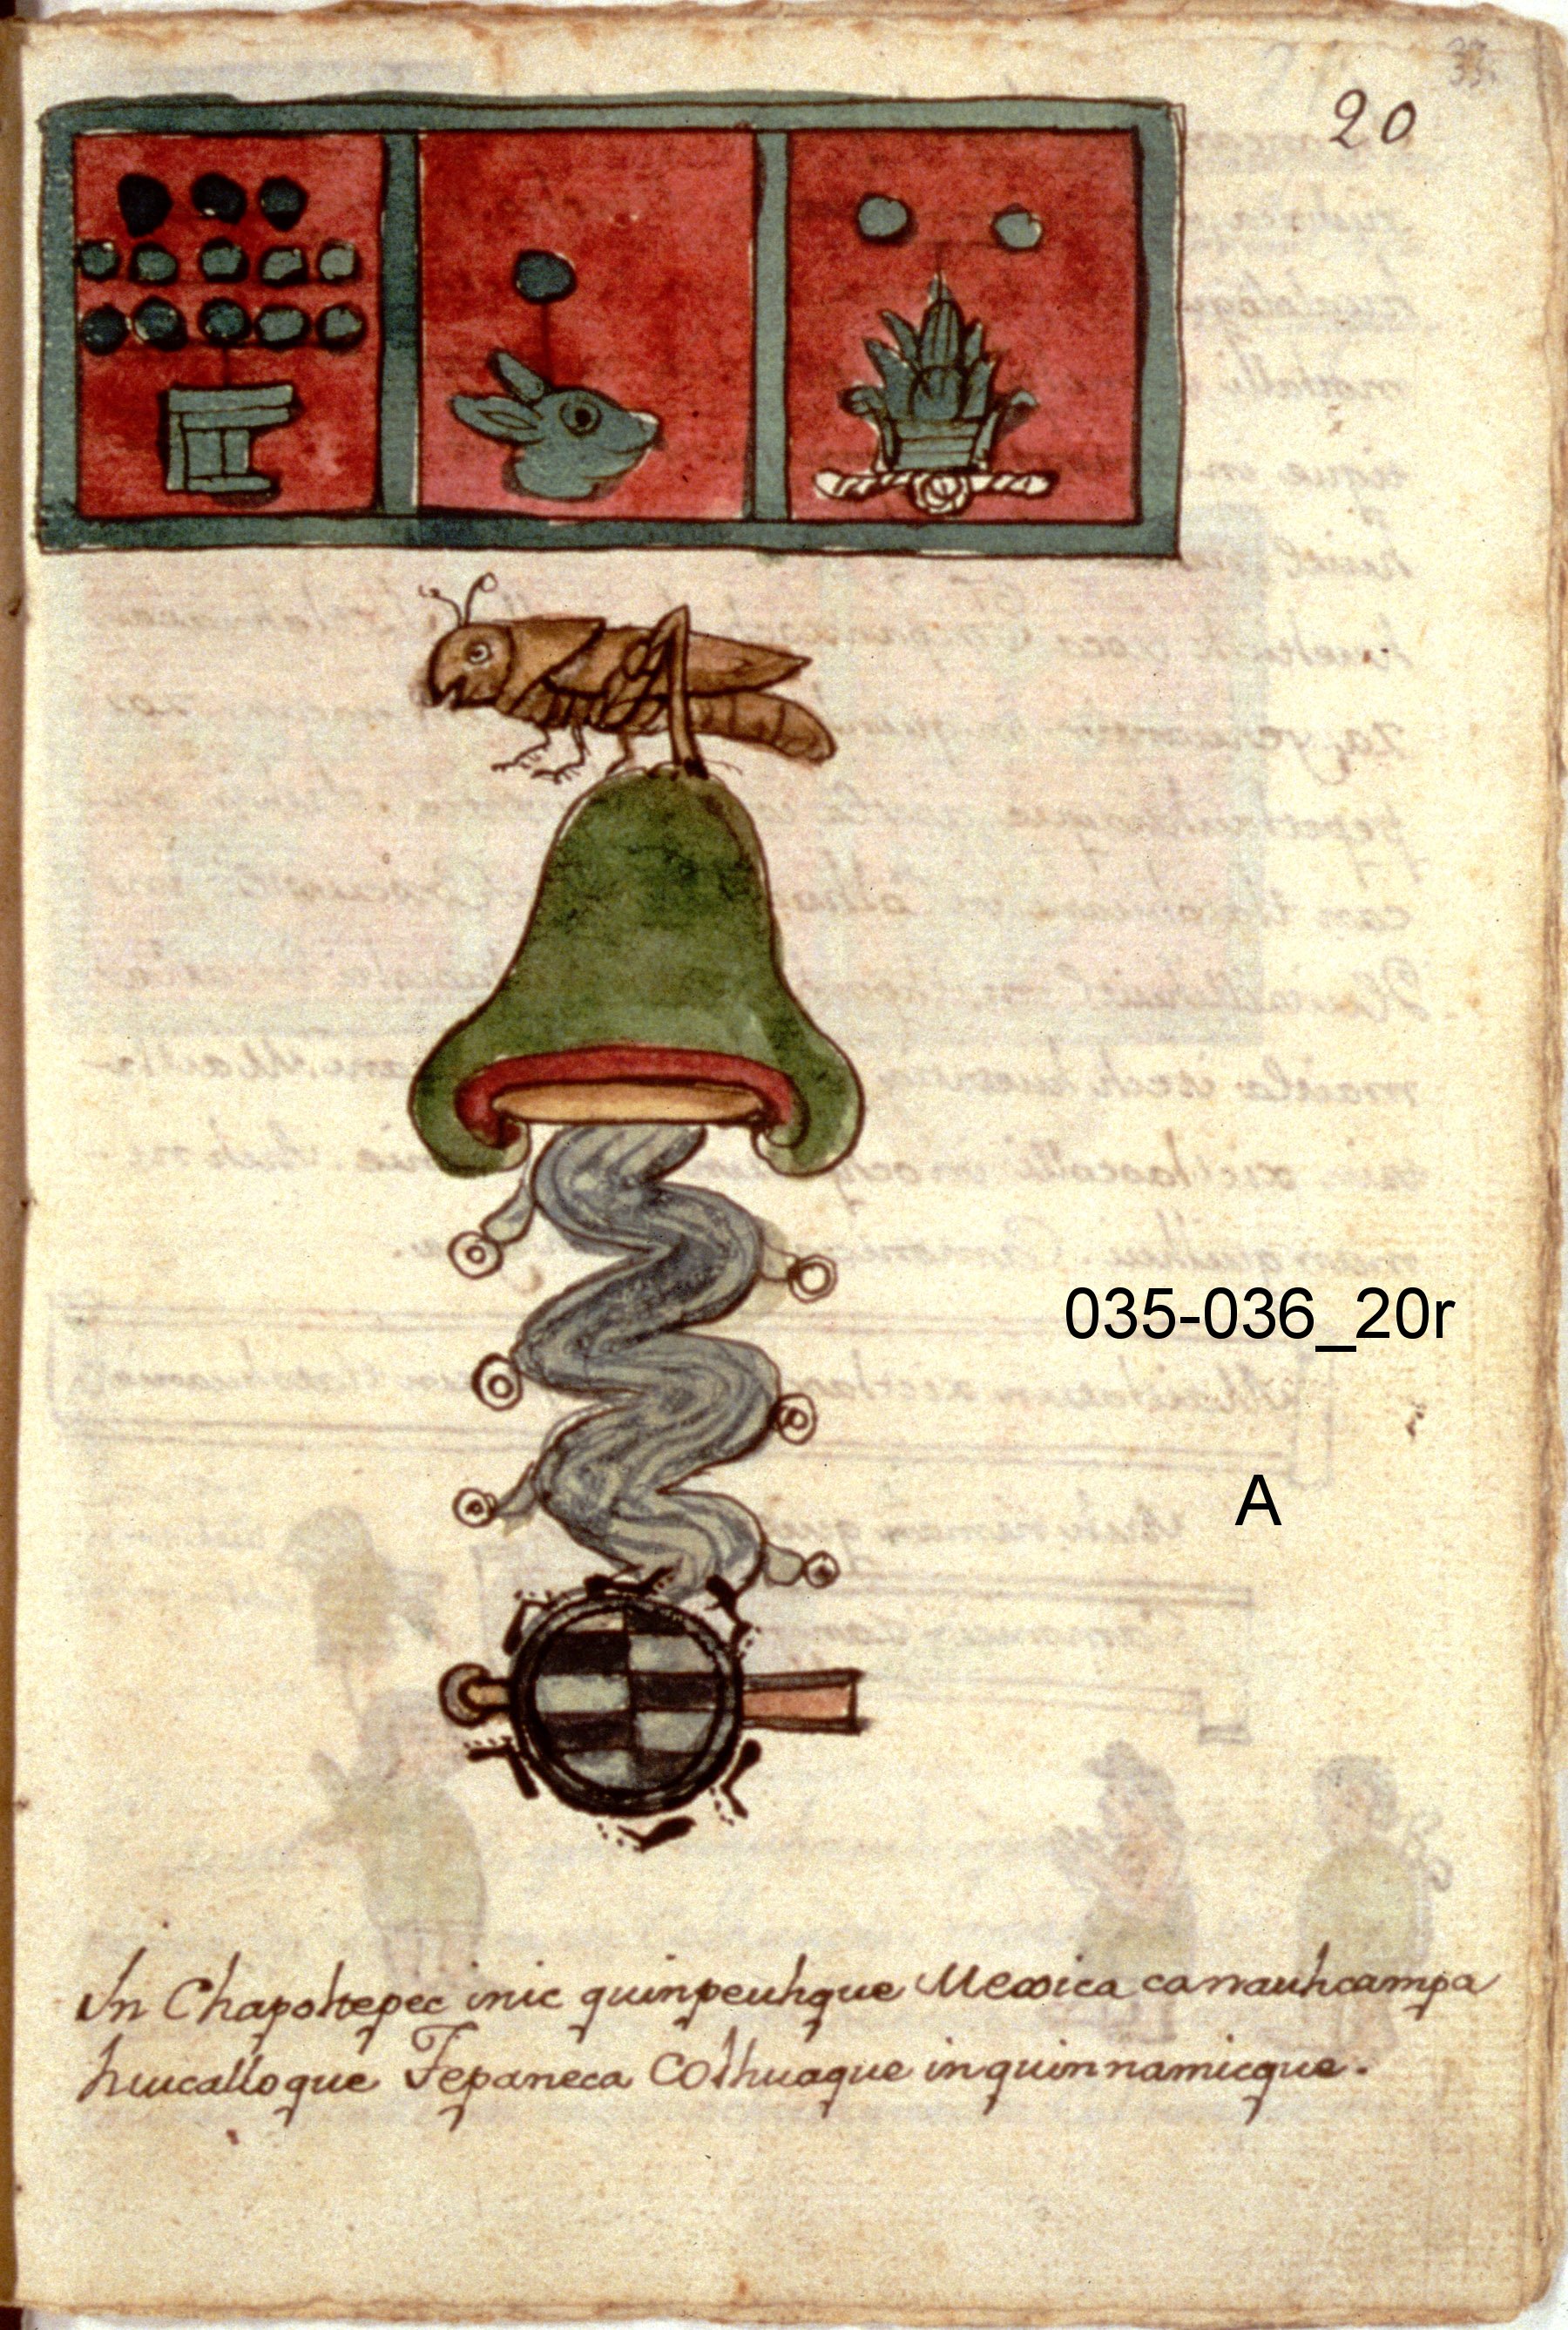 20
035-036_20r
A
In Chapoltepec inic quinpeuhque Mexica canauhcampa
huicalloque Tepaneca Colhuaque inquinnamicque.